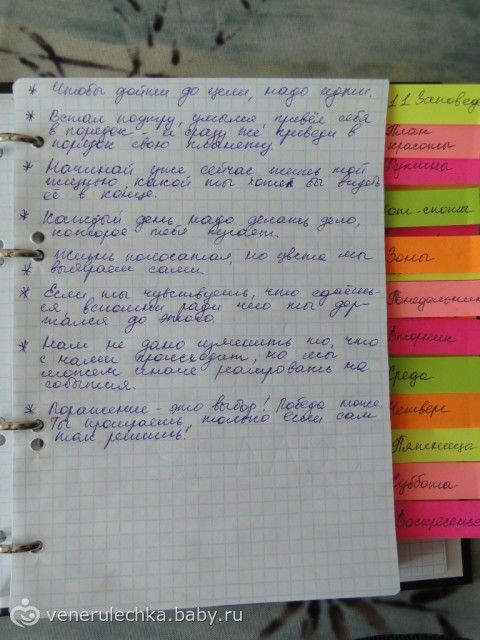 * Чтобы дойти до цели, надо идти.
* Встал поутру, умылся, привёл себя
в порядок - и сразу же приведи в
порядок свою планету.
* Начинай уже сейчас жить той
жизнью, какой ты хотел бы видеть
её в конце.
* Каждый день, надо делать дело,
которое тебя пугает.
Жизнь полосатая, но цвета мы
* выбираем сами.
* Если ты чувствуешь, что сдаёшь-
ся, вспомни ради чего ты дер-
жался до этого.
* Нам не дано изменить то, что
с нами происходит, но мы
можем иначе реагировать на
события.
* Поражение - это выбор! Победа тоже.
Ты проиграешь, только если сам
так решишь!
11 Заповеде
План
красоты
Рутины
Зоны
Понедельник
Вторник
Среда
Четверг
Пятница
Суббота
Воскресенье
venerulechka.baby.ru